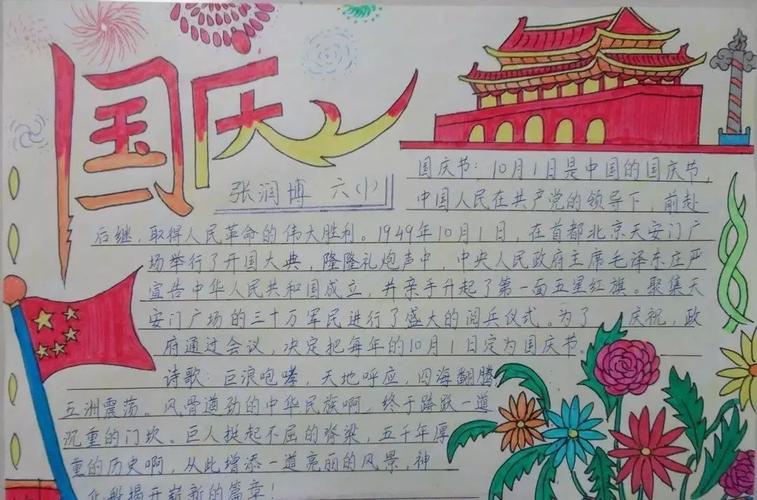 国庆
张润博 六(1)
国庆节:10月1日是中国的国庆节,
中国人民在共产党的领导下,前赴
后继,取得人民革命的伟大胜利。1949年10月1日,在首都北京天安门广
场举行了开国大典,隆隆礼炮声中,中央人民政府主席毛泽东庄严
宣告中华人民共和国成立,并亲手升起了第一面五星红旗。聚集天
安门广场的三十万军民进行了盛大的阅兵仪式。为了 庆祝,政
府通过会议,决定把每年的10月1日定为国庆节。
诗歌:巨浪咆哮,天地呼应,四海翻腾
五洲震荡。风骨遒劲的中华民族啊,终于跨跃一道
沉重的门坎。巨人挺起不屈的脊梁,五千年厚
重的历史啊,从此增添一道亮丽的风景,神
化般揭开崭新的篇章!